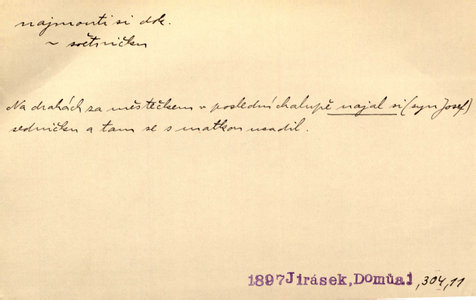 najmouti si dok.
~ světničku
Na drahách za městečkem v poslední chalupě najal si (syn Josef)
sedničku a tam se s matkou usadil.
1897 Jirásek, Domů a J ,304,11